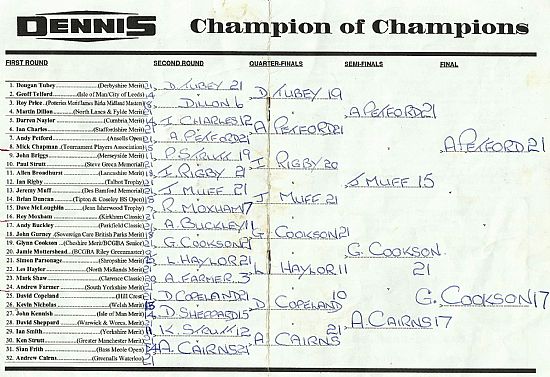 DENNIS Champion of Champions
FIRST ROUND SECOND ROUND QUARTER-FINALS SEMI-FINALS FINAL
1. Dougan Tubey (Derbyshire Merit) 21
2. Geoff Telford (Isle of Man/City of Leeds)
D. TUBEY 21
3. Roy Price
4. Martin Dillon (North Lancs & Fylde Merit) 21
DILLON 6
D TUBEY 19
5. Darren Naylor (Cumbria Merit) 14
6. Ian Charles (Staffordshire Merit) 21
I. CHARLES 12
7. Andy Petford (Ansells Open) 21
8. Mick Chapman (Tournament Players Association) 15
A. PETFORD 21
A PETFORD 21
A PETFORD 21
9. John Briggs (Merseyside Merit)
10. Paul Strutt (Steve Grocs Memorial) 21
P. STRUTT 19
11. Allen Broadhurst (Lancashire Merit) 18
12. Ian Rigby (Talbot Trophy) 21
I RIGBY 21
I RIGBY 20
13. Jeremy Muff (Des Bamford Memorial) 21
14. Brian Duncan (Tipton & Coseley BS Open) 18
J. MUFF 21
15. Dave McLoughlin (Jean Isherwood Trophy)
16. Roy Moxham (Kirkham Classic) 21
R. MOXHAM 17
J MUFF 21
J MUFF 15
A PETFORD 21
17. Andy Buckley (Parkfield Classic) 21
18. John Gurney (Sovereign Care British Parks Merit) 18
A. BUCKLEY 11
19. Glynn Cookson (Cheshire Merit/BCGBA Senior) 21
20. Jamie Mottershead (BCGBA Riley Greenmaster)
G. COOKSON 21
G COOKSON 21
21. Simon Parsonage (Shropshire Merit)
22. Les Haylor (North Midlands Merit) 21
L HAYLOR 21
23. Mark Shaw (Clarence Classic) 20
24. Andrew Farmer (South Yorkshire Merit) 21
A. FARMER 3
L HAYLOR 11
G. COOKSON 21
25. David Copeland (Hill Cross) 21
26. Kevin Nicholas (Welsh Merit) 15
D. COPELAND 21
27. John Kennish (Isle of Man Merit)
28. David Sheppard (Warwick & Worcs. Merit) 21
D. SHEPPARD 15
D COPELAND 10
29. Ian Smith (Yorkshire Merit) 11
30. Ken Strutt (Greater Manchester Merit) 21
K. STRUTT 12
31. Stan Frith (Bass Meole Open)
32. Andrew Cairns (Greenalls Waterloo) 21
A. CAIRNS 21
A. CAIRNS 21
A. CAIRNS 17
G. COOKSON 17